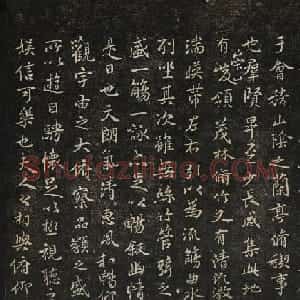 于會稽山陰之蘭亭脩稧事
也羣賢畢至少長咸集此地
有崇山峻領茂林脩竹又有清流激
湍暎帶左右引以為流觴曲水
列坐其次雖無絲竹管弦之
盛一觴一詠亦足以暢敘幽情
是日也天朗氣清惠風和暢仰
觀宇宙之大俯察品類之盛
所以遊目騁懷足以極視聽之
娛信可樂也夫人之相與俯仰
Shufaziliao.com